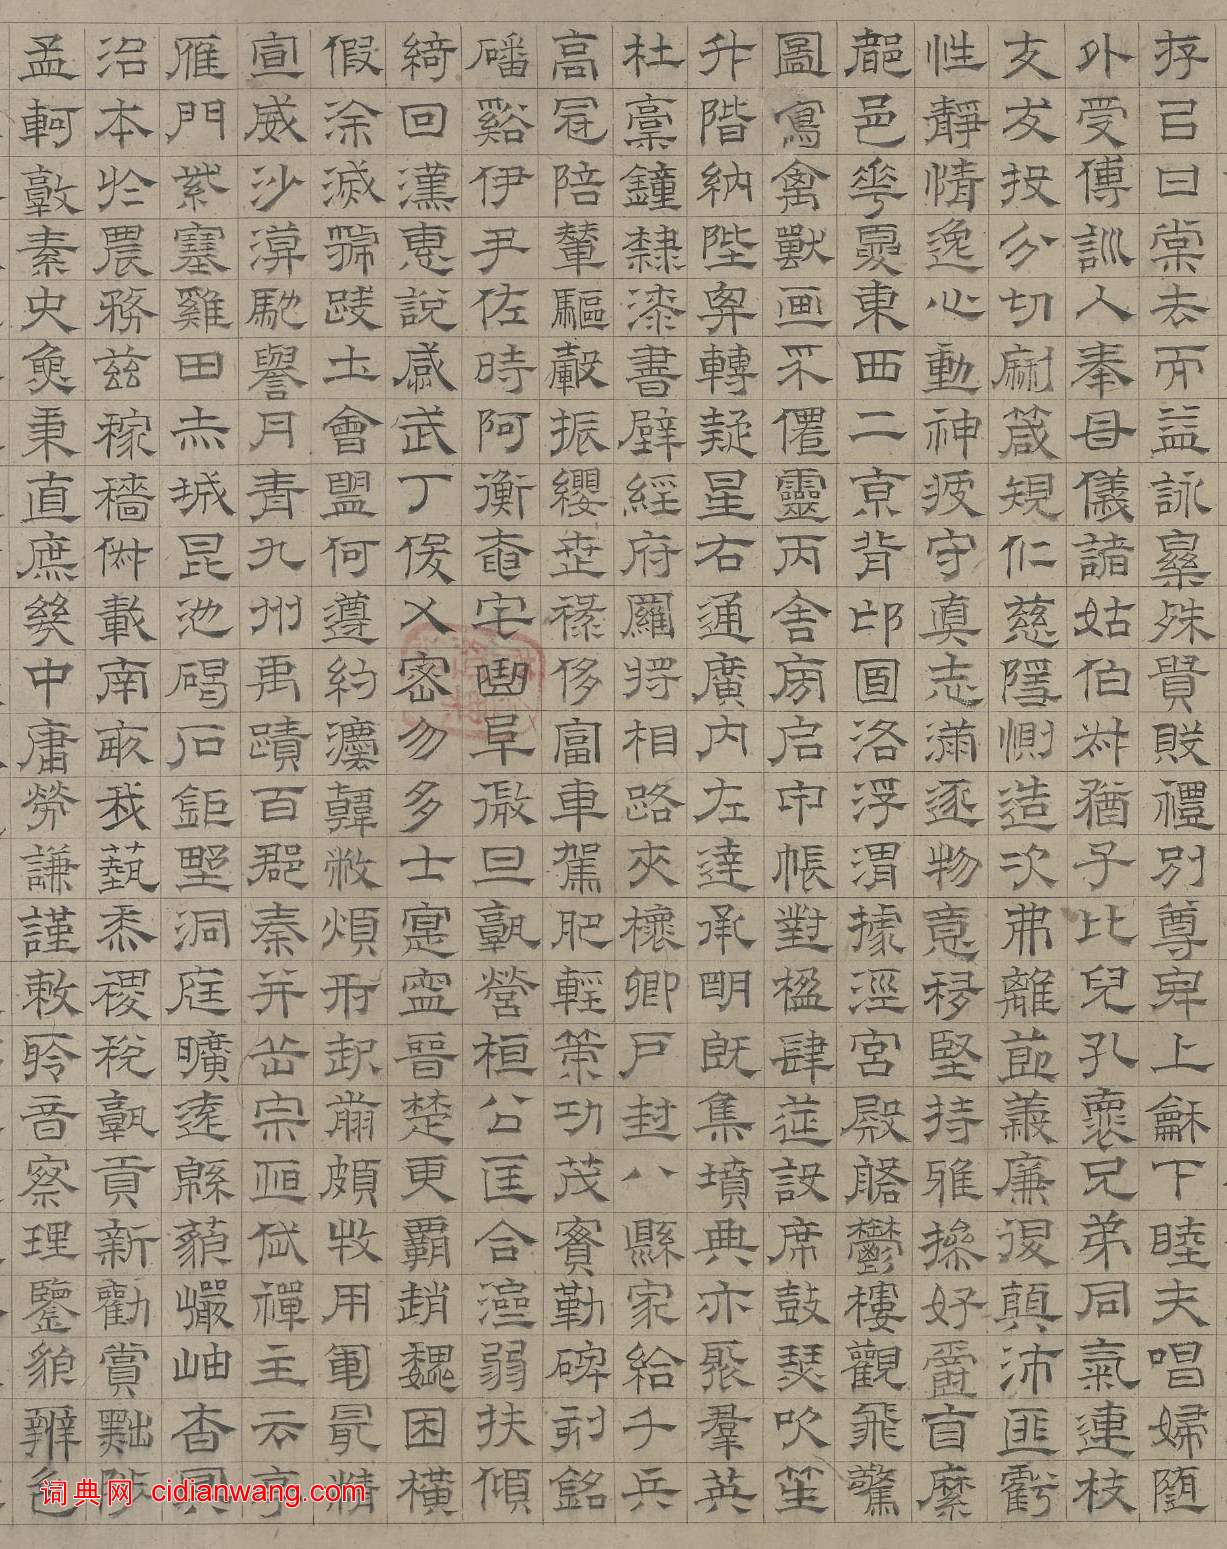 存㠯甘棠去而益詠樂殊貴賤禮別尊卑上龢下睦夫唱婦隨
外受傅訓入奉母儀諸姑伯叔猶子比兒孔懷兄弟同氣連枝
交友投分切磨箴規仁慈隱惻造次弗離節義廉退顛沛匪虧
性靜情逸心動神疲守真志滿逐物意移堅持雅操好爵自縻
都邑華夏東西二京背邙面洛浮渭據涇宮殿盤鬱樓觀飛驚
圖寫禽獸画采僊靈丙舍傍启甲帳對楹肆筵設席鼓瑟吹笙
升階納陛弁轉疑星右通廣內左達承明既集墳典亦聚羣英
杜稾鐘隸漆書壁經府羅將相路夾槐卿戶封八縣家給千兵
高冠陪輦驅轂振纓世祿侈富車駕肥輕策功茂實勒碑刻銘
磻谿伊尹佐時阿衡奄宅曲阜微旦孰營桓公匡合濟弱扶傾
綺回漢惠說感武丁俊乂密勿多士寔寧晉楚更霸趙魏困橫
假涂滅虢踐土會盟何遵約灋韓弊煩刑起翦頗牧用軍最精
宣威沙漠馳譽丹青九州禹蹟百郡秦并岳宗恒岱禪主云亭
雁門紫塞雞田赤城昆池碣石鉅野洞庭曠遠緜邈巖岫杳冥
治本於農務茲稼穡俶載南畝我藝黍稷稅孰貢新勸賞黜陟
孟軻敦素史魚秉直庶幾中庸勞謙謹敕聆音察理鑒貌辨色
词典网 cidianwang.com